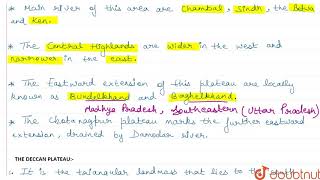 * Main river of this area are Chambal, Sindh, the Betwa
and Ken.
* The Central Highlands are wider in the west and
narrower in the east.
* The Eastward extension of this plateau are locally
known as Bundelkhand and Baghelkhand.
Madhya Pradesh, Southeastern (Uttar Pradesh)
* The Chotanagpur plateau marks the further eastward
extension, drained by Damodar river.
THE DECCAN PLATEAU:-
It is the triangular landmass that lies to the south
doubtnut